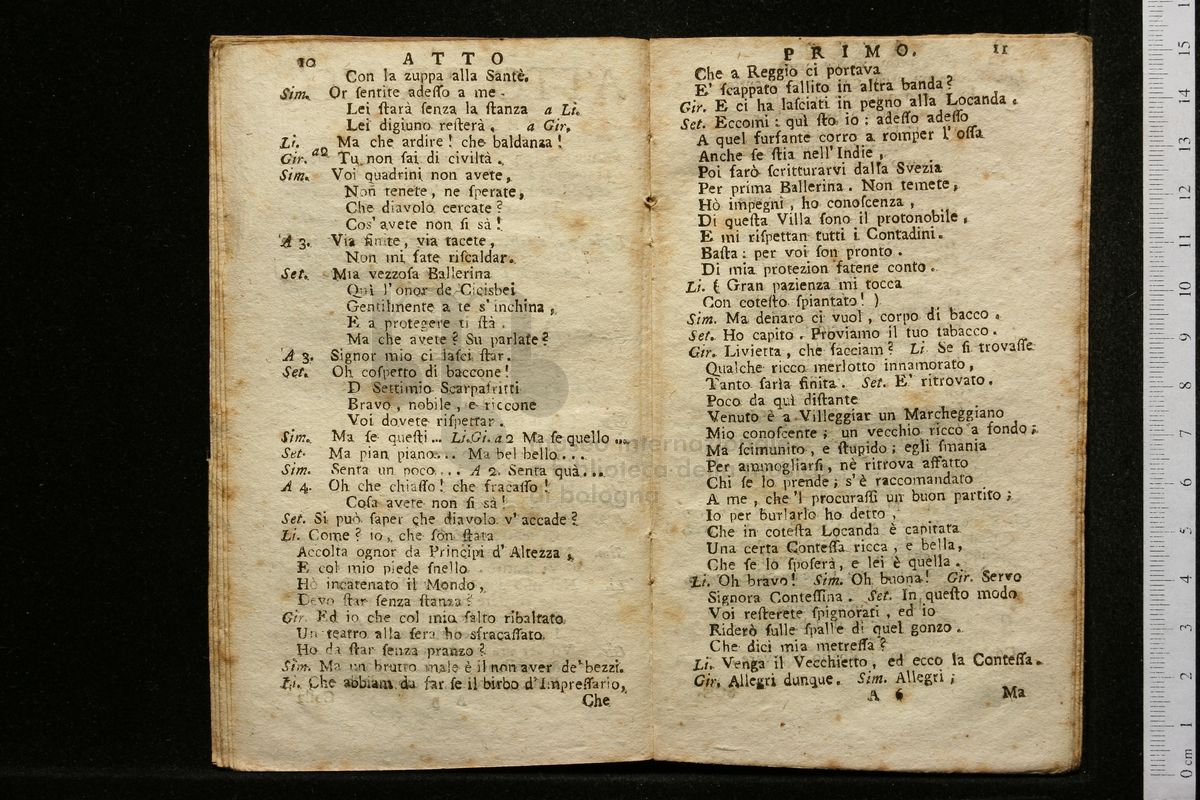 10 ATTO
Con la zuppa alla Santè.
Sim. Or ſentite adeſſo a me.
Lei ſtarà ſenza la ſtanza a Li.
Lei digiuno reſterà. a Gir.
Li. Ma che ardire! che baldanza!
Gir. a2 Tu non ſai di civiltà.
Sim. Voi quadrini non avete,
Non tenete, ne ſperate,
Che diavolo cercate?
Cos' avete non ſi sà!
A 3. Via finite, via tacete,
Non mi fate riſcaldar.
Set. Mia vezzoſa Ballerina
Quì l'onor de Cicisbei
Gentilmente a te s'inchina,
E a protegere ti ſtà.
Ma che avete? Su parlate?
A 3. Signor mio ci laſci ſtar.
Set. Oh coſpetto di baccone!
D Settimio Scarpafritti
Bravo, nobile, e riccone
Voi dovete riſpettar.
Sim. Ma ſe queſti... Li.Gi. a 2 Ma ſe quello ...
Set. Ma pian piano... Ma bel bello...
Sim. Senta un poco... A 2. Senta quà...
A 4. Oh che chiaſſo! che fracaſſo!
Coſa avete non ſi sà!
Set. Si può ſaper che diavolo v' accade?
Li. Come? io, che ſon ſtata
Accolta ognor da Principi d' Altezza,
E col mio piede ſnello
Hò incatenato il Mondo,
Devo ſtar ſenza ſtanza?
Gir. Ed io che col mio ſalto ribaltato
Un teatro alla ſera ho sfracaſſato
Ho da ſtar ſenza pranzo?
Sim. Ma un brutto male è il non aver de' bezzi.
Li. Che abbiam da far ſe il birbo d'Impreſſario,
Che
PRIMO. 11
Che a Reggio ci portava
E' ſcappato fallito in altra banda?
Gir. E ci ha laſciati in pegno alla Locanda.
Set. Eccomi: quì ſto io: adeſſo adeſſo
A quel furfante corro a romper l' oſſa
Anche ſe ſtia nell' Indie,
Poi farò ſcritturarvi dalla Svezia
Per prima Ballerina. Non temete,
Hò impegni, ho conoſcenza,
Di queſta Villa ſono il protonobile,
E mi riſpettan tutti i Contadini.
Baſta: per voi ſon pronto.
Di mia protezion fatene conto.
Li. ( Gran pazienza mi tocca
Con coteſto ſpiantato! )
Sim. Ma denaro ci vuol, corpo di bacco.
Set. Ho capito. Proviamo il tuo tabacco.
Gir. Livietta, che facciam? Li Se ſi trovaſſe
Qualche ricco merlotto innamorato,
Tanto ſaria finita. Set. E' ritrovato.
Poco da quì diſtante
Venuto è a Villeggiar un Marcheggiano
Mio conoſcente; un vecchio ricco a fondo;
Ma ſcimunito, e ſtupido; egli ſmania
Per ammogliarſi, nè ritrova affatto
Chi ſe lo prende; s'è raccomandato
A me, che 'l procuraſſi un buon partito;
Io per burlarlo ho detto,
Che in coteſta Locanda è capitata
Una certa Conteſſa ricca, e bella,
Che ſe lo ſpoſerà, e lei è quella.
Li. Oh bravo! Sim. Oh buona! Gir. Servo
Signora Conteſſina. Set. In queſto modo
Voi reſterete ſpignorati, ed io
Riderò ſulle ſpalle di quel gonzo.
Che dici mia metreſſa?
Li. Venga il Vecchietto, ed ecco la Conteſſa.
Gir. Allegri dunque. Sim. Allegri;
A 6 Ma